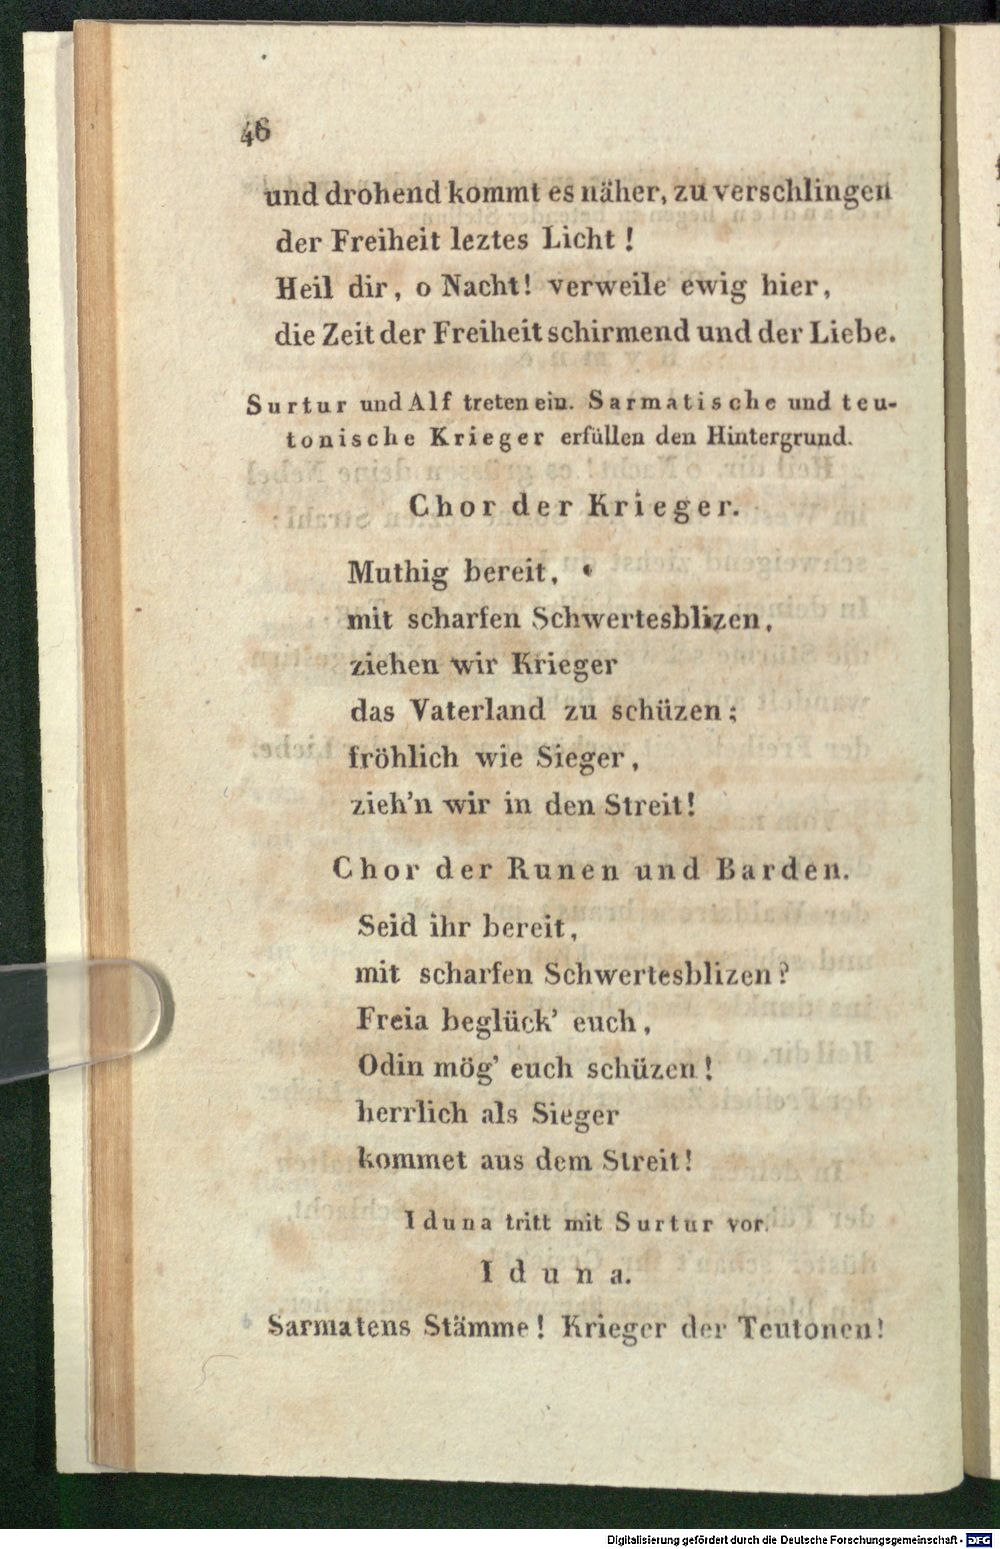 46
und drohend kommt es näher, zu verschlingen
der Freiheit leztes Licht!
Heil dir, o Nacht! verweile ewig hier,
die Zeit der Freiheit schirmend und der Liebe.
Surtur und Alf treten ein. Sarmatische und teu-
tonische Krieger erfüllen den Hintergrund.
Chor der Krieger.
Muthig bereit,
mit scharfen Schwertesblizen,
ziehen wir Krieger
das Vaterland zu schüzen;
fröhlich wie Sieger,
zieh'n wir in den Streit!
Chor der Runen und Barden.
Seid ihr bereit,
mit scharfen Schwertesblizen?
Freia beglück' euch,
Odin mög' euch schüzen!
herrlich als Sieger
kommet aus dem Streit!
Iduna tritt mit Surtur vor.
Iduna.
Sarmatens Stämme! Krieger der Teutonen!
Digitalisierung gefördert durch die Deutsche Forschungsgemeinschaft - DFG